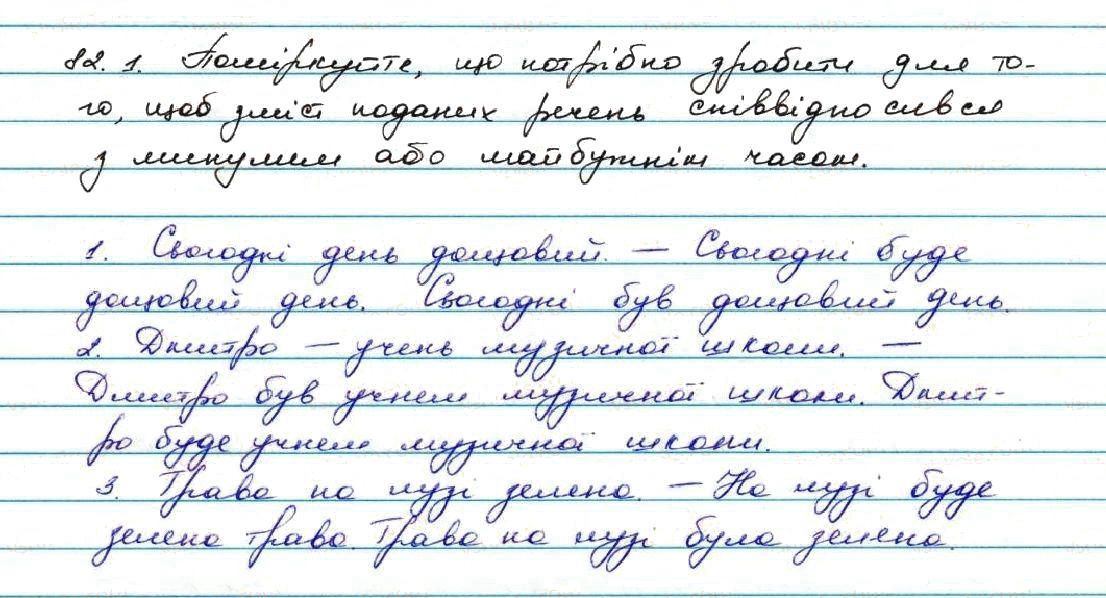 82. 1. Поміркуйте, що потрібно зробити для то-
го, щоб зміст поданих речень співвідносився
з минулим або майбутнім часом.
1. Сьогодні день дощовий. — Сьогодні буде
дощовий день. Сьогодні був дощовий день.
2. Дмитро — учень музичної школи. —
Дмитро був учнем музичної школи. Дмит-
ро буде учнем музичної школи.
3. Трава на лузі зелена. — На лузі буде
зелена трава. Трава на лузі була зелена.